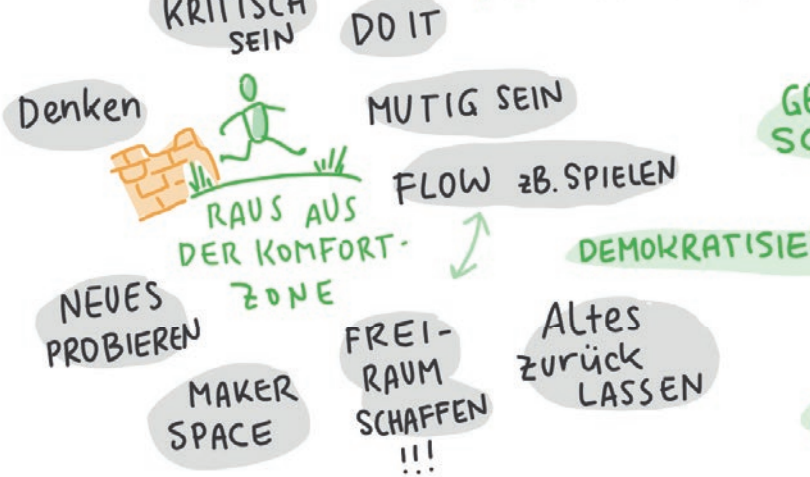 KRITISCH
SEIN
DO IT
Denken
MUTIG SEIN
FLOW zB. SPIELEN
RAUS AUS
DER KOMFORT-
ZONE
DEMOKRATISIE
NEUES
PROBIEREN
MAKER
SPACE
FREI-
RAUM
SCHAFFEN
!!!
Altes
zurück
LASSEN